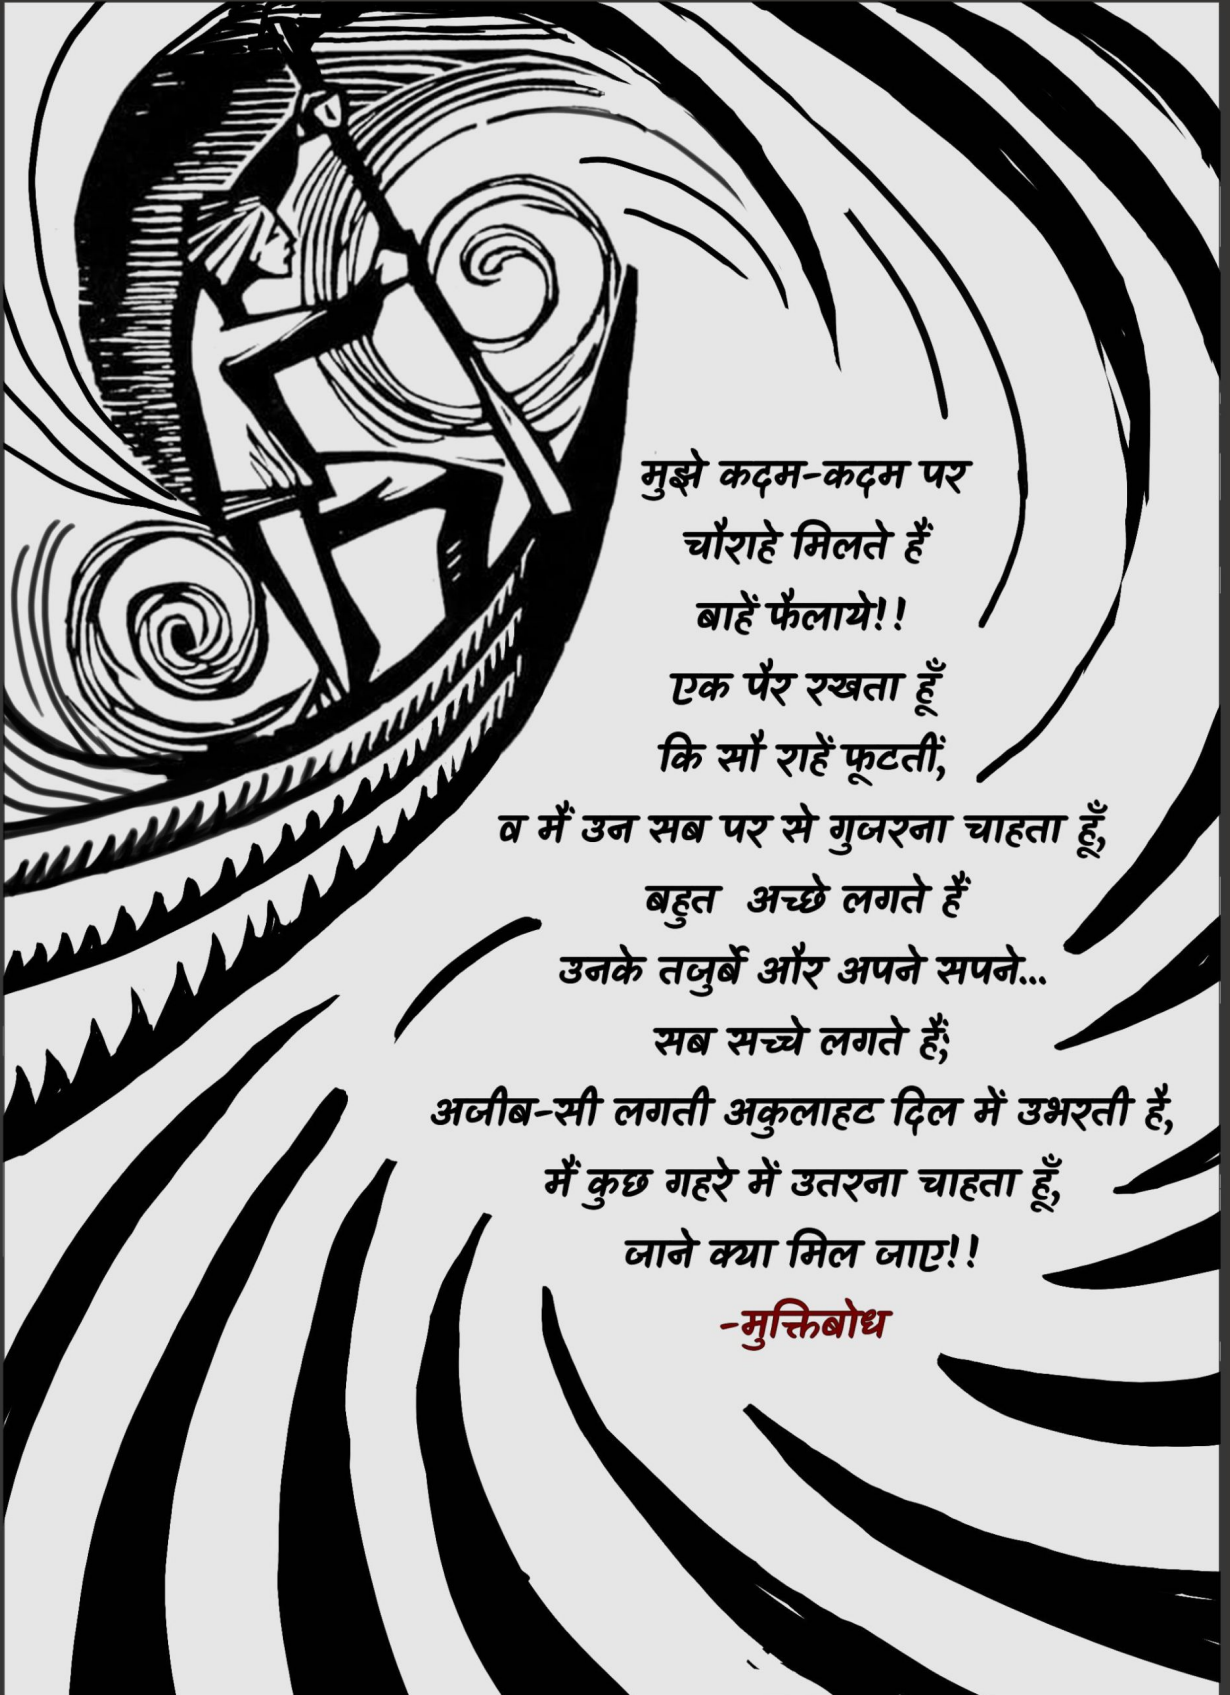 मुझे कदम-कदम पर
चौराहे मिलते हैं
बाहें फैलाये!!
एक पैर रखता हूँ
कि सौ राहें फूटतीं,
व मैं उन सब पर से गुजरना चाहता हूँ,
बहुत अच्छे लगते हैं
उनके तजुर्बे और अपने सपने...
सब सच्चे लगते हैं;
अजीब-सी लगती अकुलाहट दिल में उभरती है,
मैं कुछ गहरे में उतरना चाहता हूँ,
जाने क्या मिल जाए!!
-मुक्तिबोध